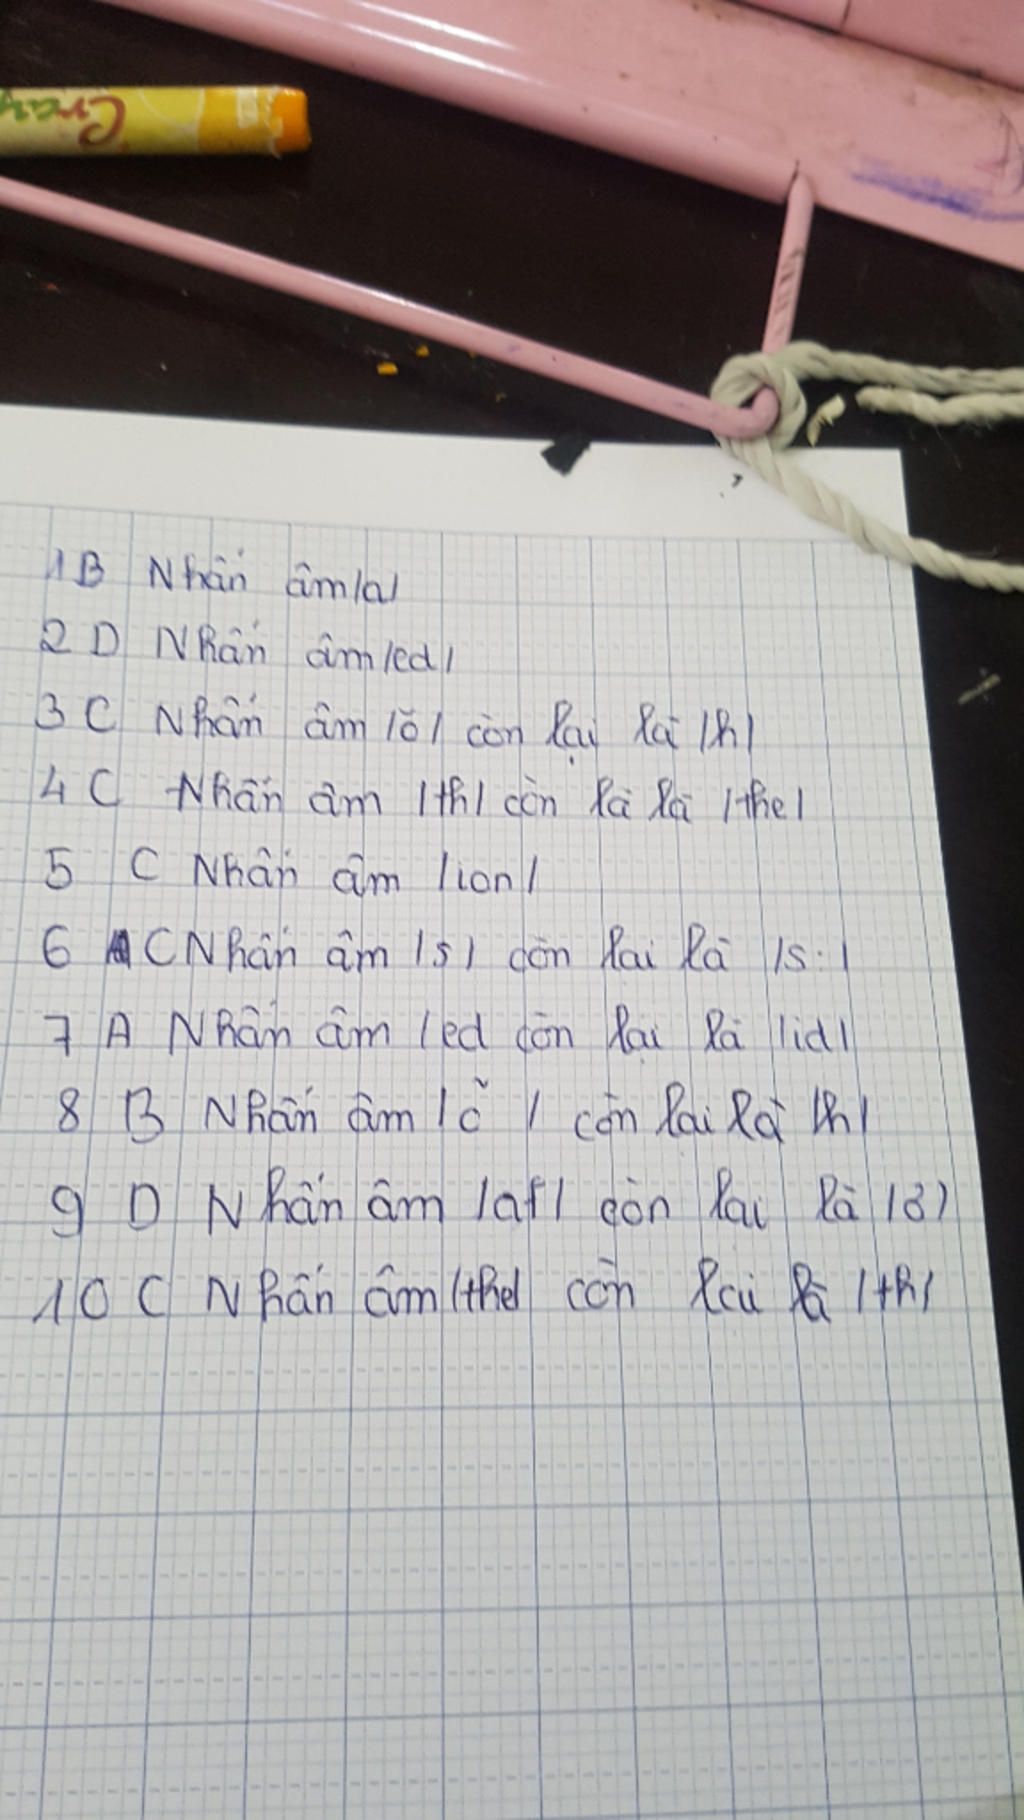 Cray
1B Nhấn âm/a/
2 D Nhấn âm/ed/
3 C Nhấn âm /ŏ/ còn lại là /h/
4 C Nhấn âm /th/ còn là là /the/
5 C Nhấn âm /ion/
6 C Nhấn âm /s/ còn lai là /s:/
7 A Nhấn âm /ed còn lại là /id/
8 B Nhấn âm / / còn lai là /h/
9 D Nhấn âm /af/ còn lai là
10 C Nhấn âm/the/ còn lai là /th/